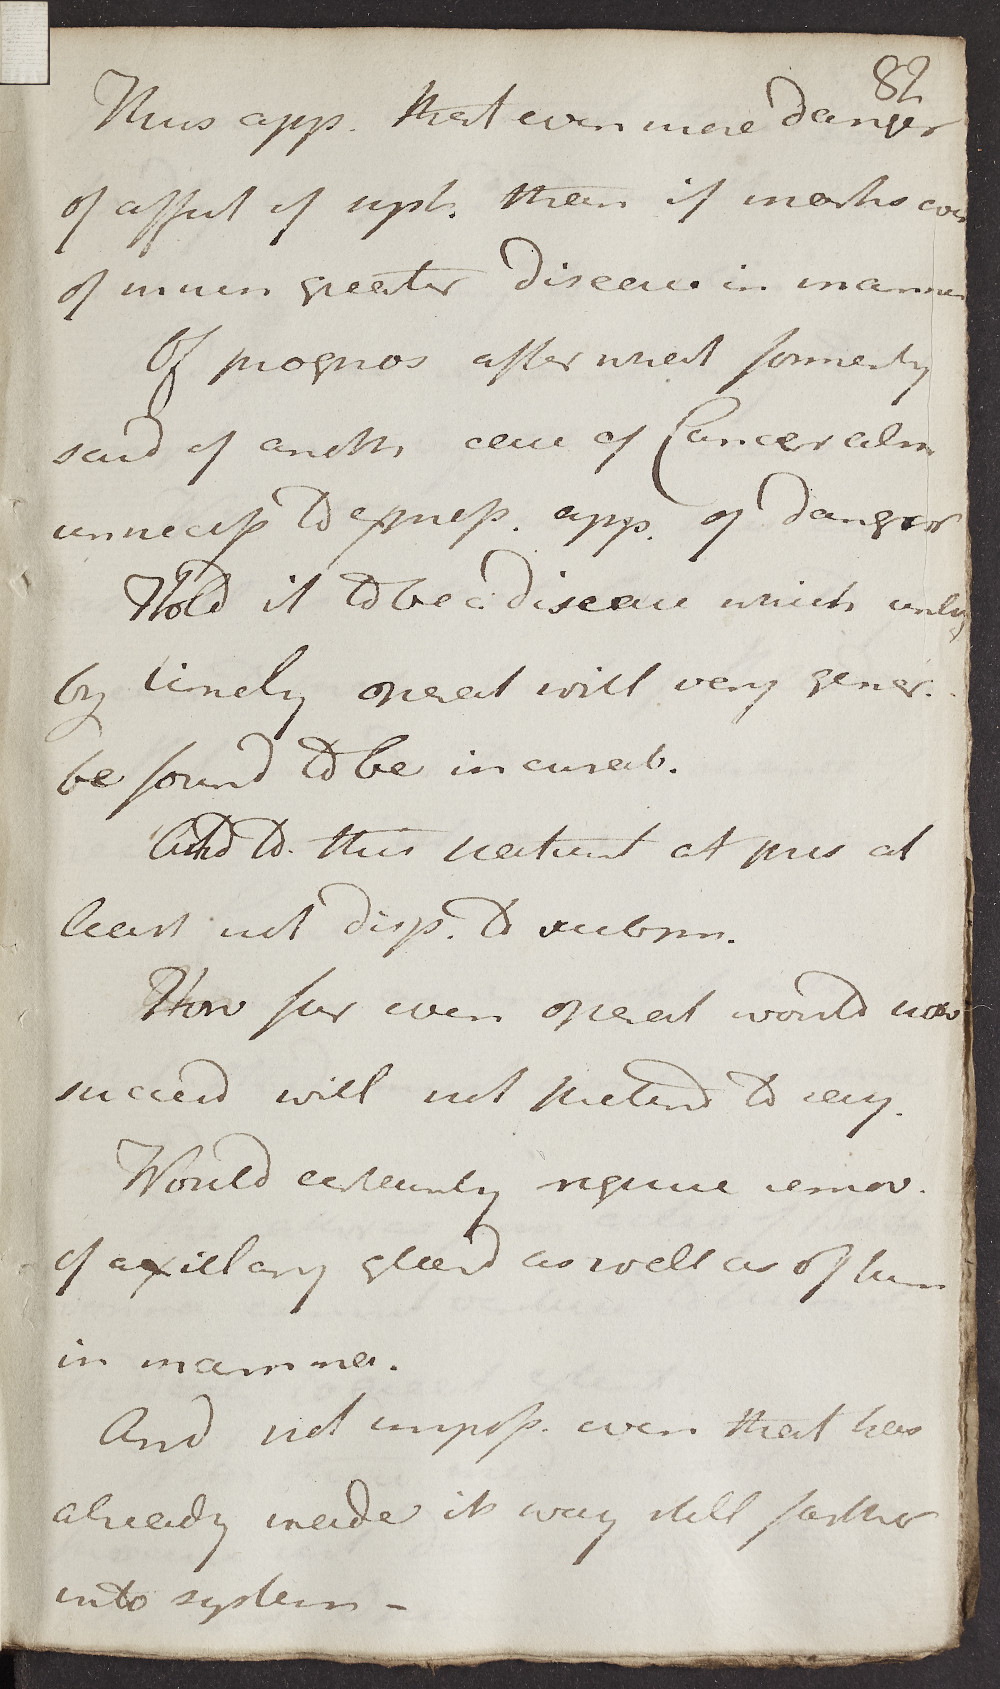 82
Thus app. that even more danger
of affect of syst. than if marks
of much greater disease in mamma
Of prognos after what formerly
said of anoth case of Cancer alm
unnecess to express. app. of danger
Hold it to be a disease which only
by timely operat will very gener.
be found to be incurab.
And to this patient at pres at
least not disp. to submn.
How far even operat would now
succeed will not pretend to say.
Would certainly require remov.
of axillary gland as well as of tum
in mamma.
And not imposs. even that has
already made its way still farther
into system -